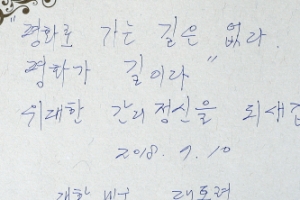 "평화로 가는 길은 없다.
평화가 길이다"
위대한 간디 정신을 되새깁
2018. 7. 10
대한민국 대통령